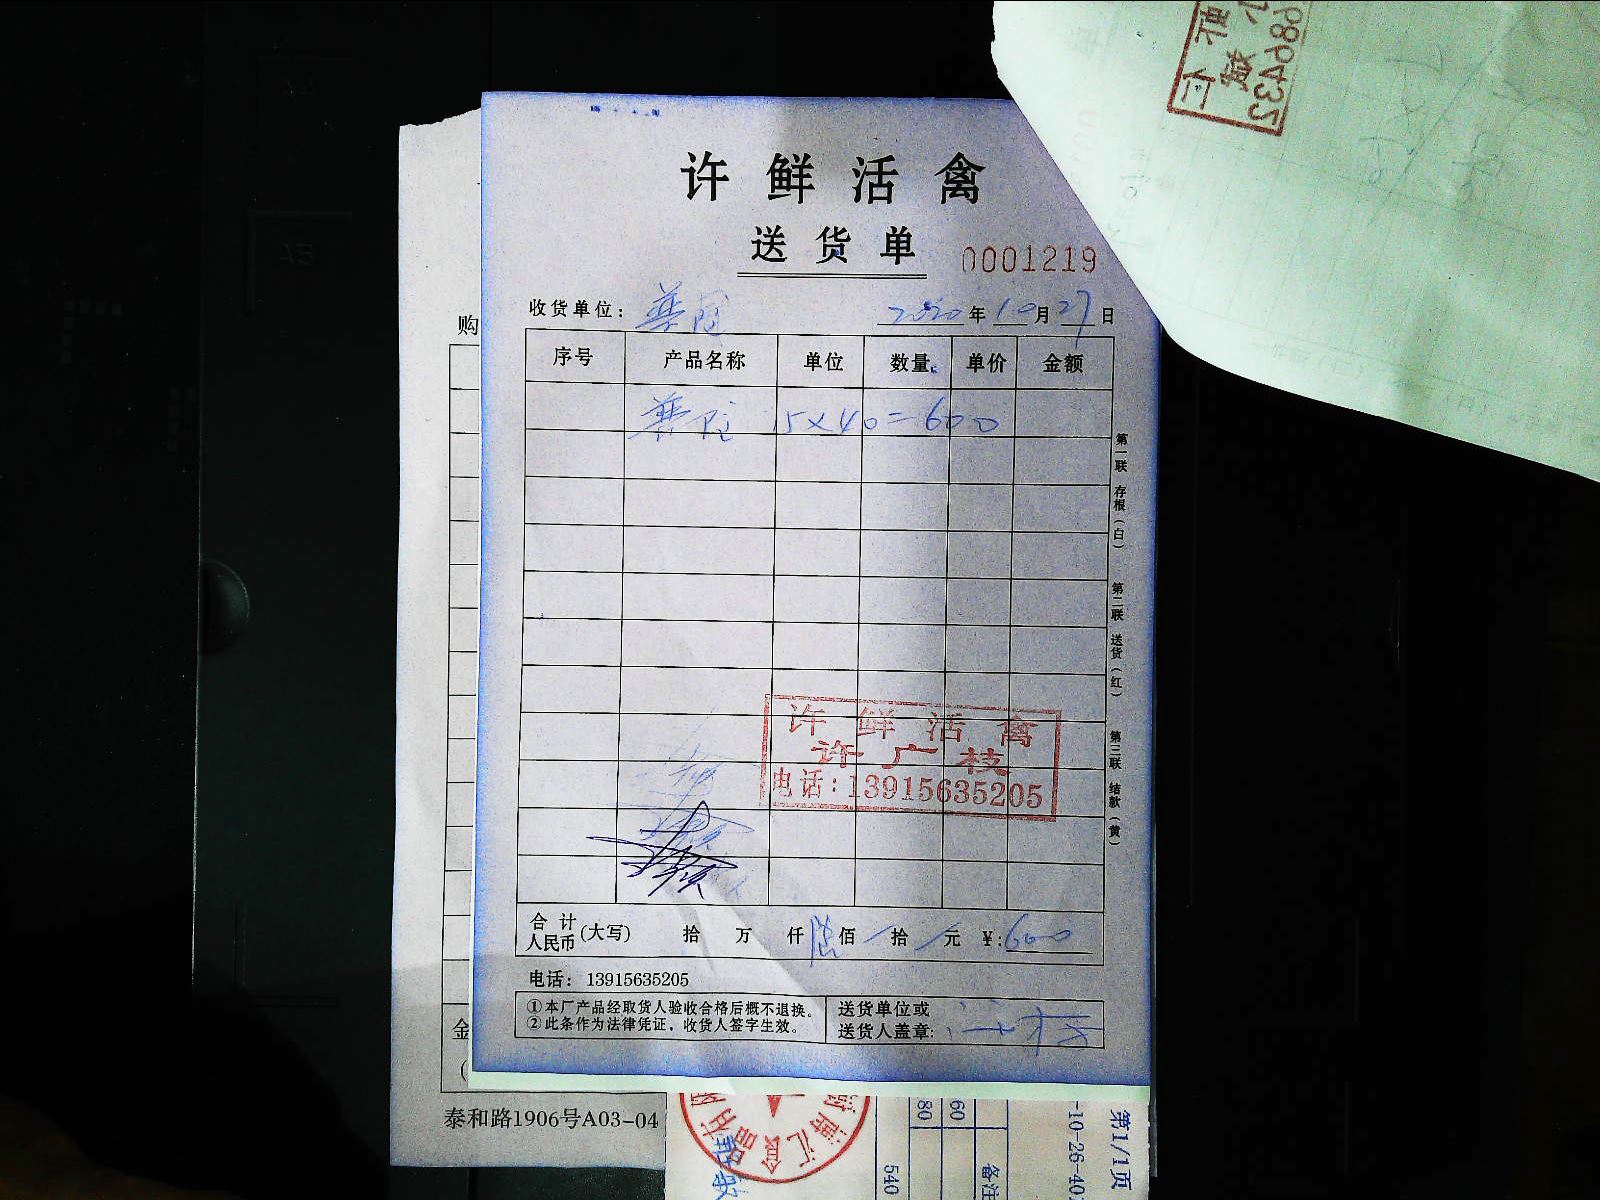 许鲜活禽
送货单
0001219
收货单位：
2020年10月27日
序号 产品名称 单位 数量 单价 金额
15×40=600
第一联 存根（白）
第二联 送货（红）
第三联 结款（黄）
许鲜活禽
许广枝
电话：13915635205
合计人民币（大写） 拾 万 仟 陆佰 拾 元 ¥:600
电话：13915635205
①本厂产品经取货人验收合格后概不退换。
②此条作为法律凭证，收货人签字生效。
送货单位或
送货人盖章：
购
金
(
泰和路1906号A03-04
80
60
540
备注
-10-26-40
第1/1页